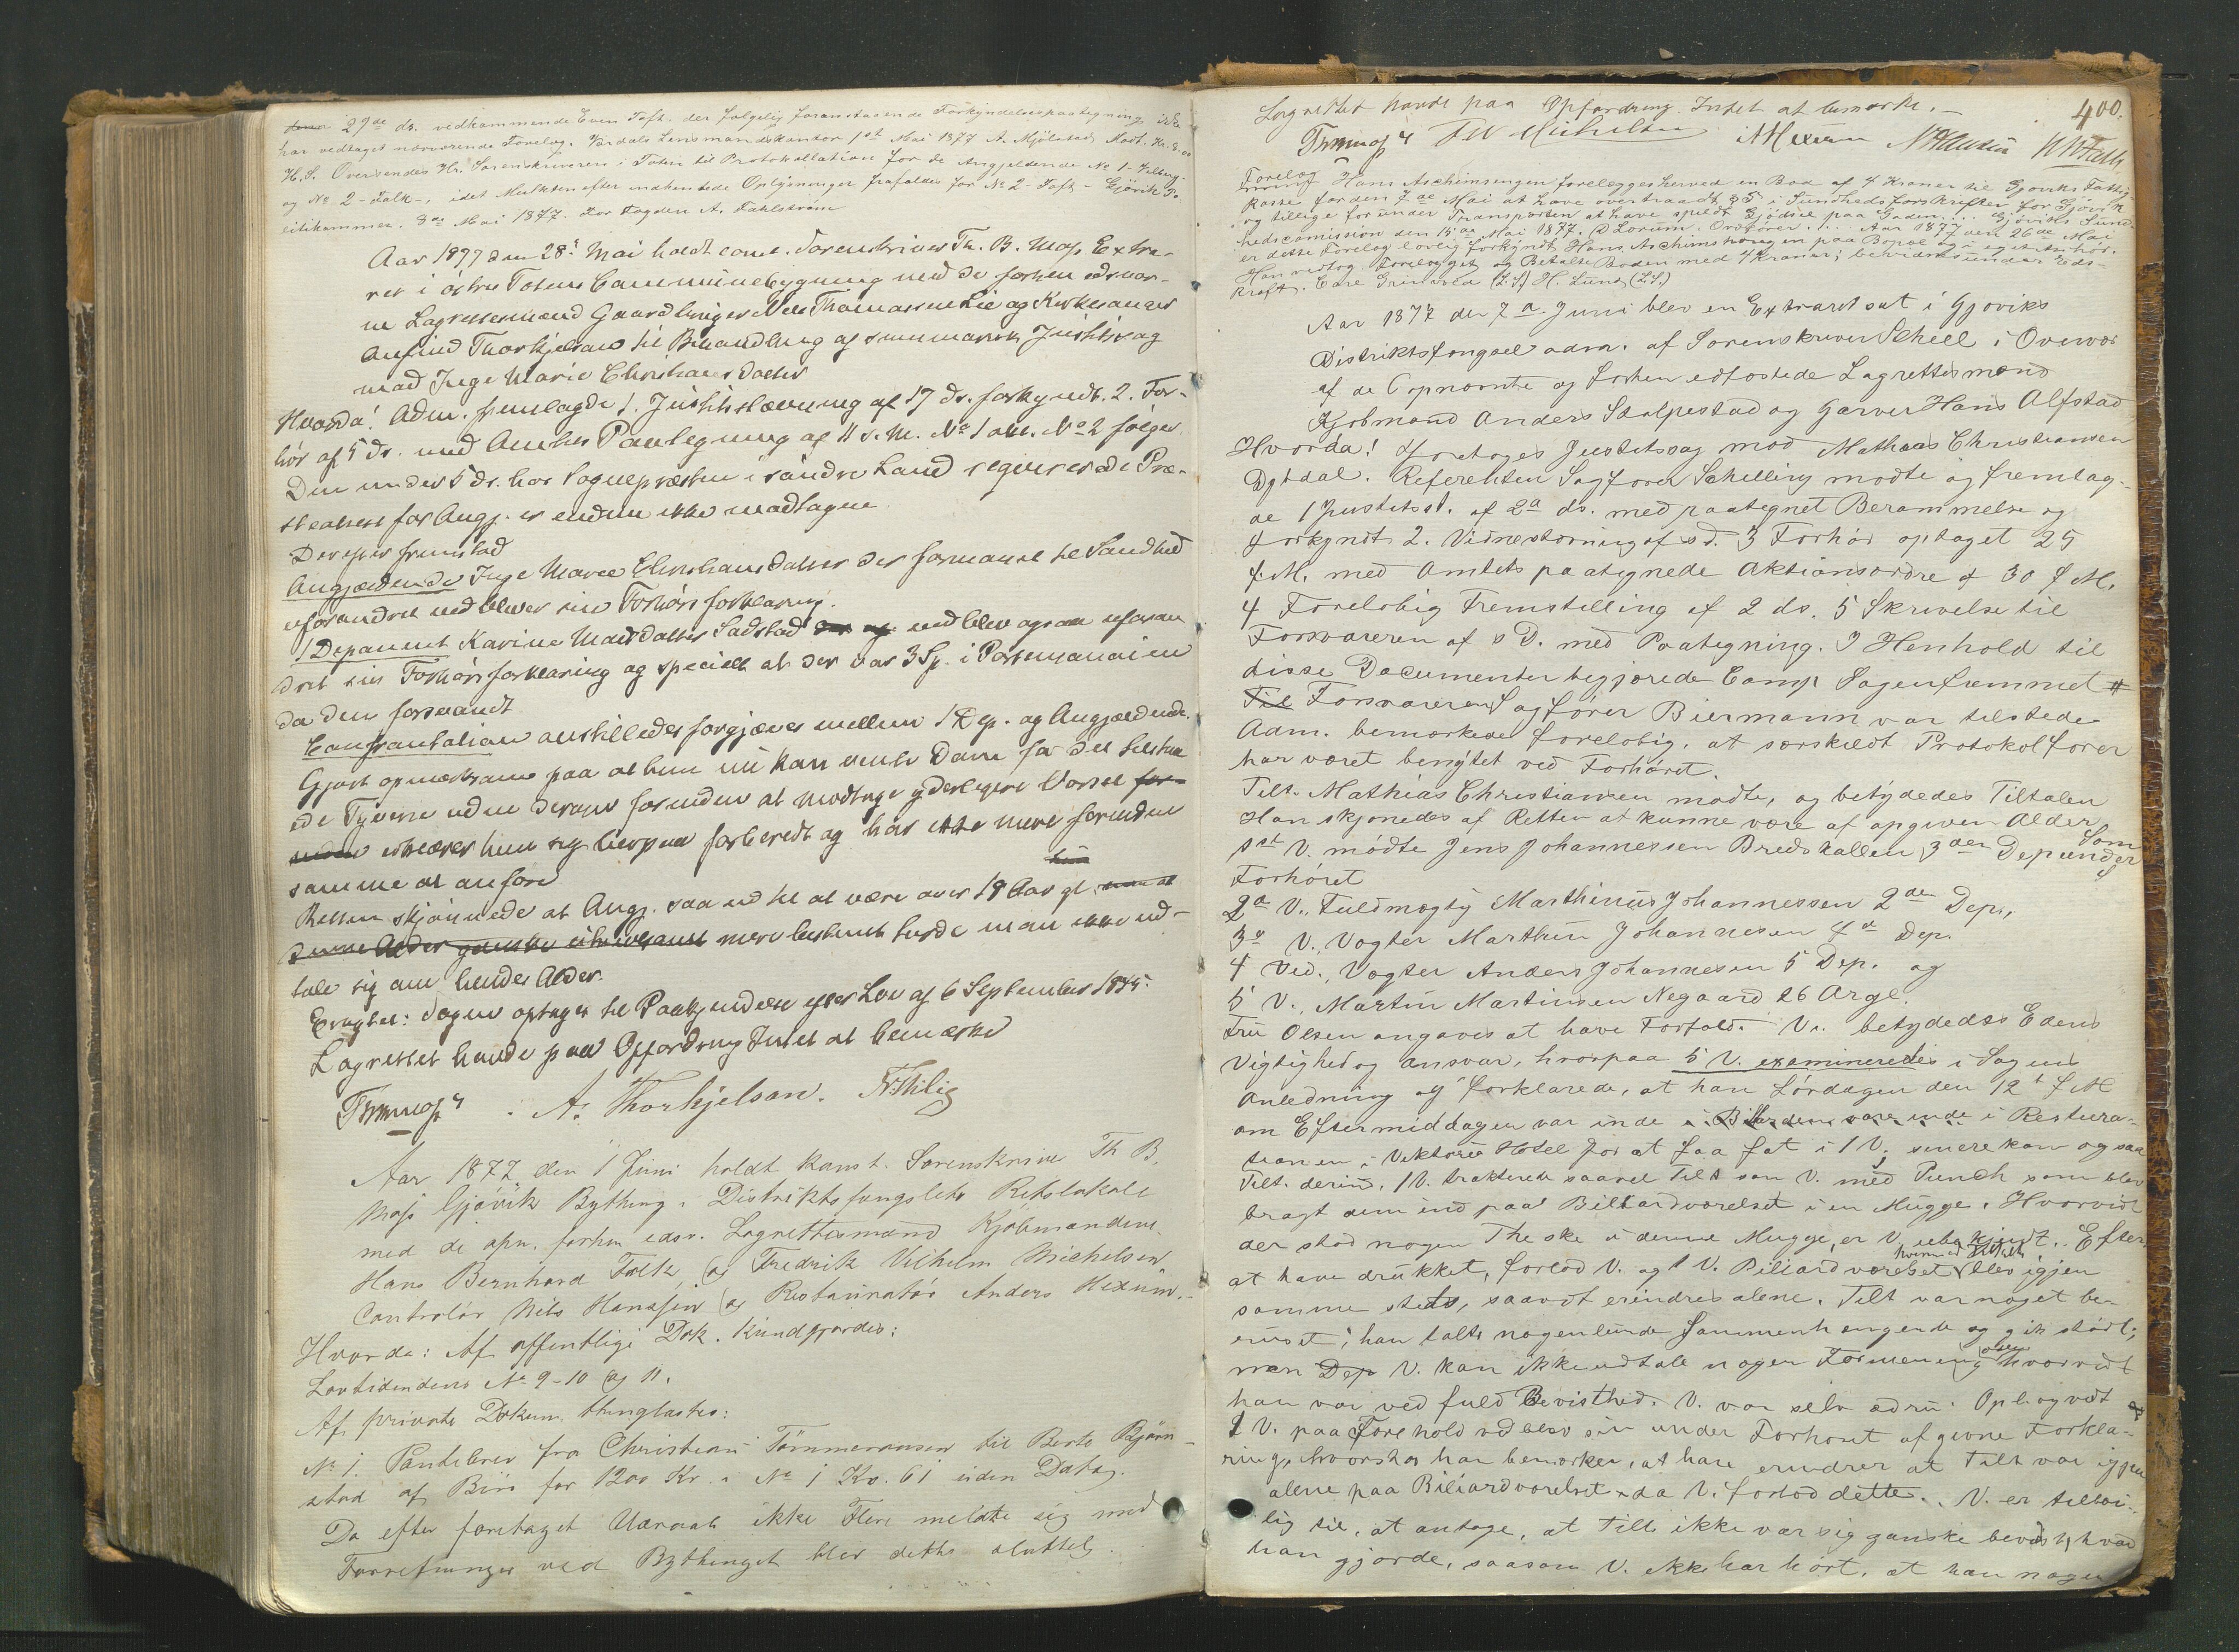 29de ds. vedkommende Even Toft. der følgelig foranstaaende Forkyndelsespaategning ikke
har vedtaget nærværende Forelæg. Vardals Lensmandskontor 1st Mai 1877 A. Mjølstad Modt. Kr. 8.00
H.S. Oversendes Hr. Sorenskriveren i Toten til Protokollation for de Angjeldende No 1-
og No 2 - Falk -, idet Mulkten efter indhentede Oplysninger frafaldes for No 2 - Toft - Gjøvik Po-
litikammer. 8de Mai 1877. For Fogden A. Fahlstrøm
Aar 1877 den 28' Mai holdt const. Sorenskriver Th. B. Moss Extra-
ret i østre Totens Communebygning med de forhen edsvor-
ne Lagrettesmænd Gaardbruger Nils Thomassen Lie og Kirkesanger
Anfind Thorkjelsen til Behandling af summarisk Justitssag
mod Inge Marie Christiansdatter
Hvorda! Adm. fremlagde 1. Justitsstævning af 17 ds. forkyndt. 2. For-
hør af 5 ds. med Amtets Paategning af 11 s. M. No 1 om. No 2 følger
Den under 5 ds. hos Sognepræsten i søndre Land requirerede Præ-
steattest for Angj. er endnu ikke modtagen
Derefter fremstod
Angjældende Inge Marie Christiansdatter der formanet til Sandhed
uforandret vedblev sin Forhørsforklaring.
1 Deponent Karine Madsdatter Sadstad der og vedblev ogsaa uforan
dret sin Forhørsforklaring og specielt at der var 3 Sp. i Portemonaien
da den forsvandt
Confrontation anstilledes forgjæves mellem 1 Dep. og Angjældende.
Gjort opmærksom paa at hun nu kan vente Dom for det tilstaa
ede Tyveri uden derom forinden at modtage yderligere Varsel for-
inden erklærer hun sig herpaa forberedt og har ikke mere forinden
samme at anføre
Retten skjønnede at Angj. saa ud til at være over 18 Aar gl.
mere bestemt turde man ikke ud-
tale sig om hendes Alder.
Eragtet: Sagen optages til Paakjendelse efter Lov af 6 September 1845.
Lagrettet havde paa Opfordring Intet at bemærke
ThBMoss A. Thorkjelsen. NThLie
Aar 1877 den 1 Juni holdt konst. Sorenskriver Th B.
Moss Gjøvik Bything i Distriktsfængslets Retslokale
med de opn. forhen edsv. Lagrettesmænd Kjøbmændene
Hans Bernhard Falk og Fredrik Vilhelm Michelsen
Controlør Nils Hanssen og Restauratør Anders Hexum.-
Hvorda: Af offentlige Dok. kundgjordes:
Lovtidendens No 9-10 og 11.
Af private Dokum. thinglæstes:
No 1. Pantebrev fra Christian Tømmeransen til Berte Bjørn-
stad af Biri for 1200 Kr. i No 1 Kv. 61 uden Datag.
Da efter foretaget Udraab ikke Flere meldte sig med
Forretninger ved Bythinget blev dette sluttet.
400.
Lagrettet havde paa Opfordring Intet at bemærke. -
ThBMoss FW Michelsen AHexum NHanssen HBFalk
Forelæg
Hans Aschimsengen forelægges herved en Bod af 4 Kroner til Gjøviks Fattig-
kasse for den 7de Mai at have overtraadt § 5 i Sundhedsforskrifter for Gjøvik
og tillige for under Transporten at have spildt Gjødsel paa Gaden... Gjøviks Sund-
hedscomission den 15de Mai 1877. Lorum. Ordfører... Aar 1877 den 26de Mai
er dette Forelæg lovlig forkyndt Hans Aschimsengen paa Bopæl og i eget Anhør.
Han vedtog Forelægget og Betalte Boden med 4 Kroner; bevidnes under Eds-
kraft. Edre Grimsrud (L.S.) H. Lund (L.S.)
Aar 1877 den 7de Juni blev en Extraret sat i Gjøviks
Distriktsfængsel adm. af Sorenskriver Scheel i Overvær
af de Opnævnte og Forhen edfæstede Lagrettesmænd
Kjøbmand Anders Stolpestad og Garver Hans Alfstad
Hvorda! foretoges Justitssag mod Mathias Christiansen
Dybdal. Referenten Sagfører Schelling mødte og fremlag-
de 1 Justitsst. af 2de ds. med paategnet Berammelse og
Forkyndt 2. Vidnestævning af s d. 3 Forhør optaget 25
f. M. med Amtets paategnede Aktionsordre af 30 f M.
4 Foreløbig Fremstilling af 2 ds. 5 Skrivelse til
Forsvareren af s D. med Paategning. I Henhold til
disse Documenter begjærede Comp Sagen fremmet #
Til Forsvareren Sagfører Biermann var tilstede
Adm. bemærkede foreløbig, at særskildt Protokolfører
har været benyttet ved Forhøret.
Tilt. Mathias Christiansen mødte, og betydedes Tiltalen
Han skjønnedes af Retten at kunne være af opgiven Alder
1st V. mødte Jens Johannessen Bredskallen 3die Dep under Som
Forhøret
2de V., Fuldmægtig Marthinus Johannessen 2den Dep.,
3de V., Vogter Marthin Johannesen 4de Dep.
4 Vid., Vogter Anders Johannesen 5 Dep. og
5 V., Martin Martinsen Negaard 26 Ar gl.
Fru Olsen angaves at have Forfald. V. betydedes Edens
Vigtighed og Ansvar, hvorpaa 5 V. examineredes i Sagens
Anledning og forklarede, at han Lørdagen den 12t f M
om Eftermiddagen var inde i Billarden vare inde i Restura-
tionen i Viktoria Hotel for at faa fat i 1 V; senere kom ogsaa
Tilt. derind. 1 V. trakterede saavel Tilt som V. med Punch som blev
bragt dem ind paa Billiardværelset i en Mugge. Hvorvidt
der stod nogen Theske i denne Mugge, er V. ubekjendt. Efter
at have drukket, forlod V. og 1 V. Biliardværelset hvorved Tilt blev igjen
samme steds, saavidt erindres alene. Tilt var noget be-
ruset; han talte nogenlunde sammenhængende og gik stødt;
men Dep V. kan ikke udtale nogen Formening om hvorvidt
han var ved fuld Bevisthed. V. var selv ædru. Oplæg vedt #
1 V. paa Forehold vedblev sin under Forhøret afgivne Forkla-
ring, hvorhos han bemærker, at have erindrer at Tilt var igjen
alene paa Biliardværelset da V. forlod dette. V. er tilbøi-
lig til, at antage, at Tilt ikke var sig ganske bevidst, hvad
han gjorde, saasom V. ikke har hørt, at han nogen